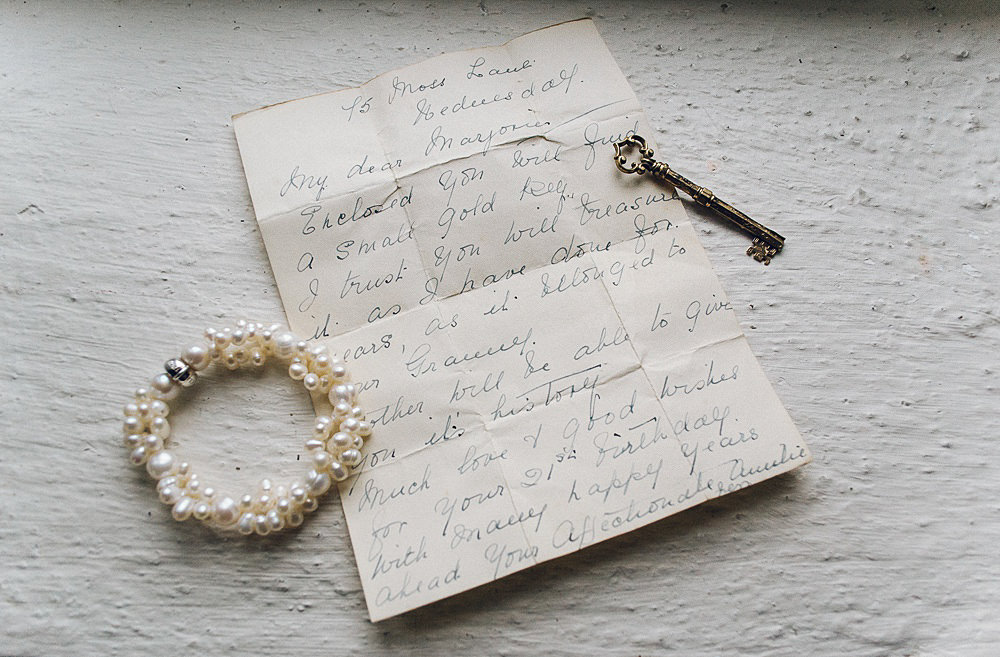 75 Moss Lane
Wednesday.
My dear Marjorie
Enclosed you will find
a small gold key,
I trust you will treasure
it. as I have done for
years, as it belonged to
our Granny.
other will be able to give
you it's history
Much love & good wishes
for your 21st birthday.
with many happy years
ahead Your Affectionate Auntie